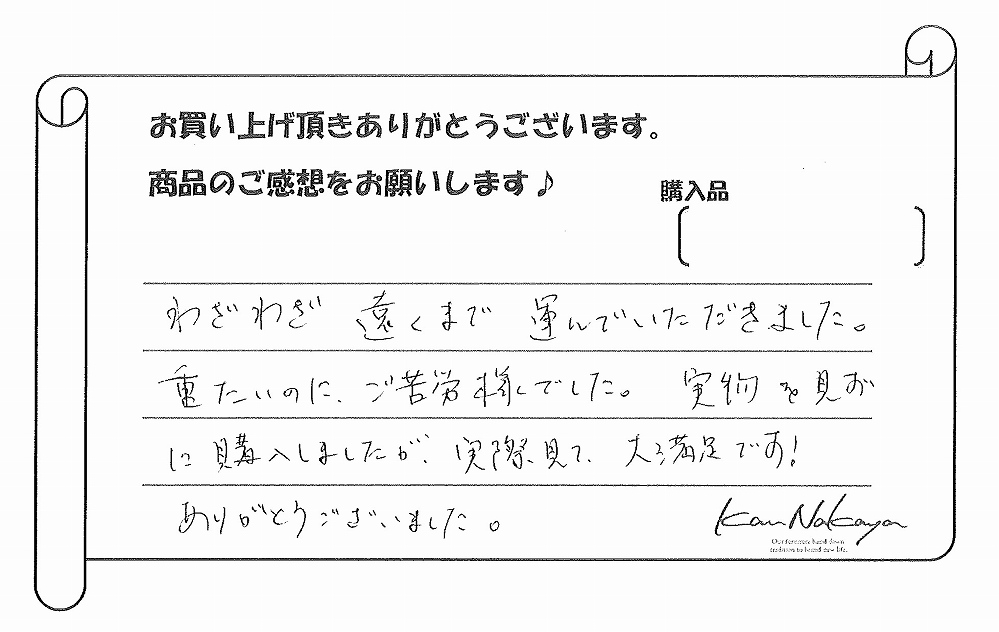 お買い上げ頂きありがとうございます。
商品のご感想をお願いします♪
購入品
わざわざ 遠くまで 運んでいただきました。
重たいのに、ご苦労様でした。 実物を見ず
に購入しましたが、実際見て、大満足です!
ありがとうございました。
Kan Nakaya
Our forerunners hand down
tradition to brand new life.